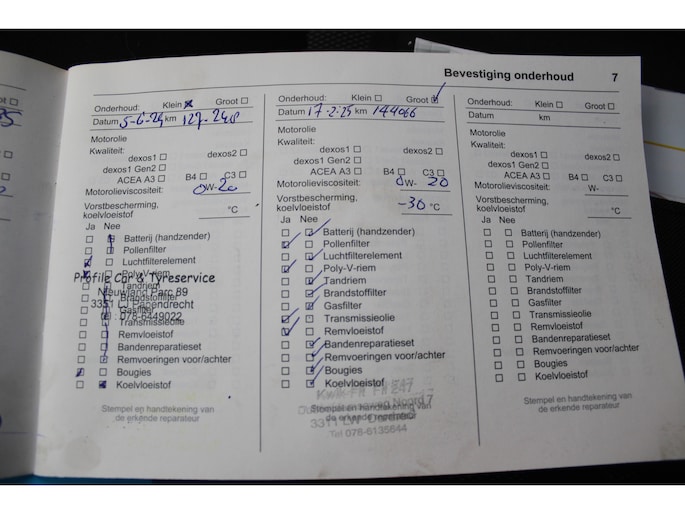 Bevestiging onderhoud 7
Onderhoud: Klein Groot
Datum 5-6-24 km
Motorolie
Kwaliteit:
dexos1 dexos2
dexos1 Gen2
ACEA A3 B4 C3
Motorolieviscositeit: 0W-20
Vorstbescherming,
koelvloeistof °C
Ja Nee
Batterij (handzender)
Pollenfilter
Luchtfilterelement
Poly-V-riem
Profile Car & Tyreservice
Tandriem
Nieuwland Parc 89
Brandstoffilter
3351 LJ Papendrecht
Gasfilter
tel: 078-6449022
Transmissieolie
Remvloeistof
Bandenreparatieset
Remvoeringen voor/achter
Bougies
Koelvloeistof
Stempel en handtekening van
de erkende reparateur
Onderhoud: Klein Groot
Datum 17-2-25 km 144066
Motorolie
Kwaliteit:
dexos1 dexos2
dexos1 Gen2
ACEA A3 B4 C3
Motorolieviscositeit: 0W-20
Vorstbescherming,
koelvloeistof -30 °C
Ja Nee
Batterij (handzender)
Pollenfilter
Luchtfilterelement
Poly-V-riem
Tandriem
Brandstoffilter
Gasfilter
Transmissieolie
Remvloeistof
Bandenreparatieset
Remvoeringen voor/achter
Bougies
Koelvloeistof
Stempel en handtekening van
de erkende reparateur
3311 LW
Tel 078-6135644
Onderhoud: Klein Groot
Datum km
Motorolie
Kwaliteit:
dexos1 dexos2
dexos1 Gen2
ACEA A3 B4 C3
Motorolieviscositeit: W-
Vorstbescherming,
koelvloeistof °C
Ja Nee
Batterij (handzender)
Pollenfilter
Luchtfilterelement
Poly-V-riem
Tandriem
Brandstoffilter
Gasfilter
Transmissieolie
Remvloeistof
Bandenreparatieset
Remvoeringen voor/achter
Bougies
Koelvloeistof
Stempel en handtekening van
de erkende reparateur